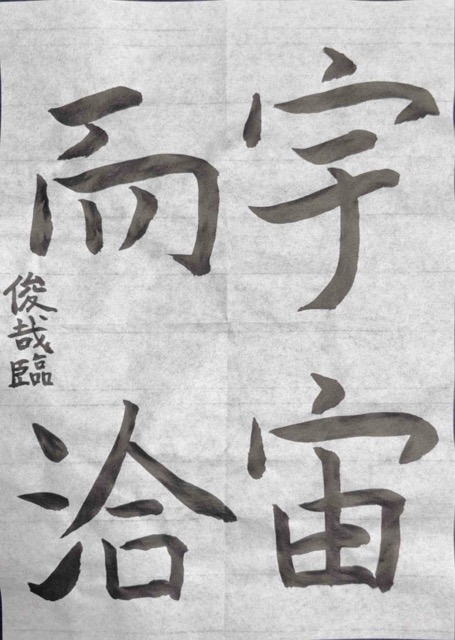 宇宙
而洽
俊哉臨